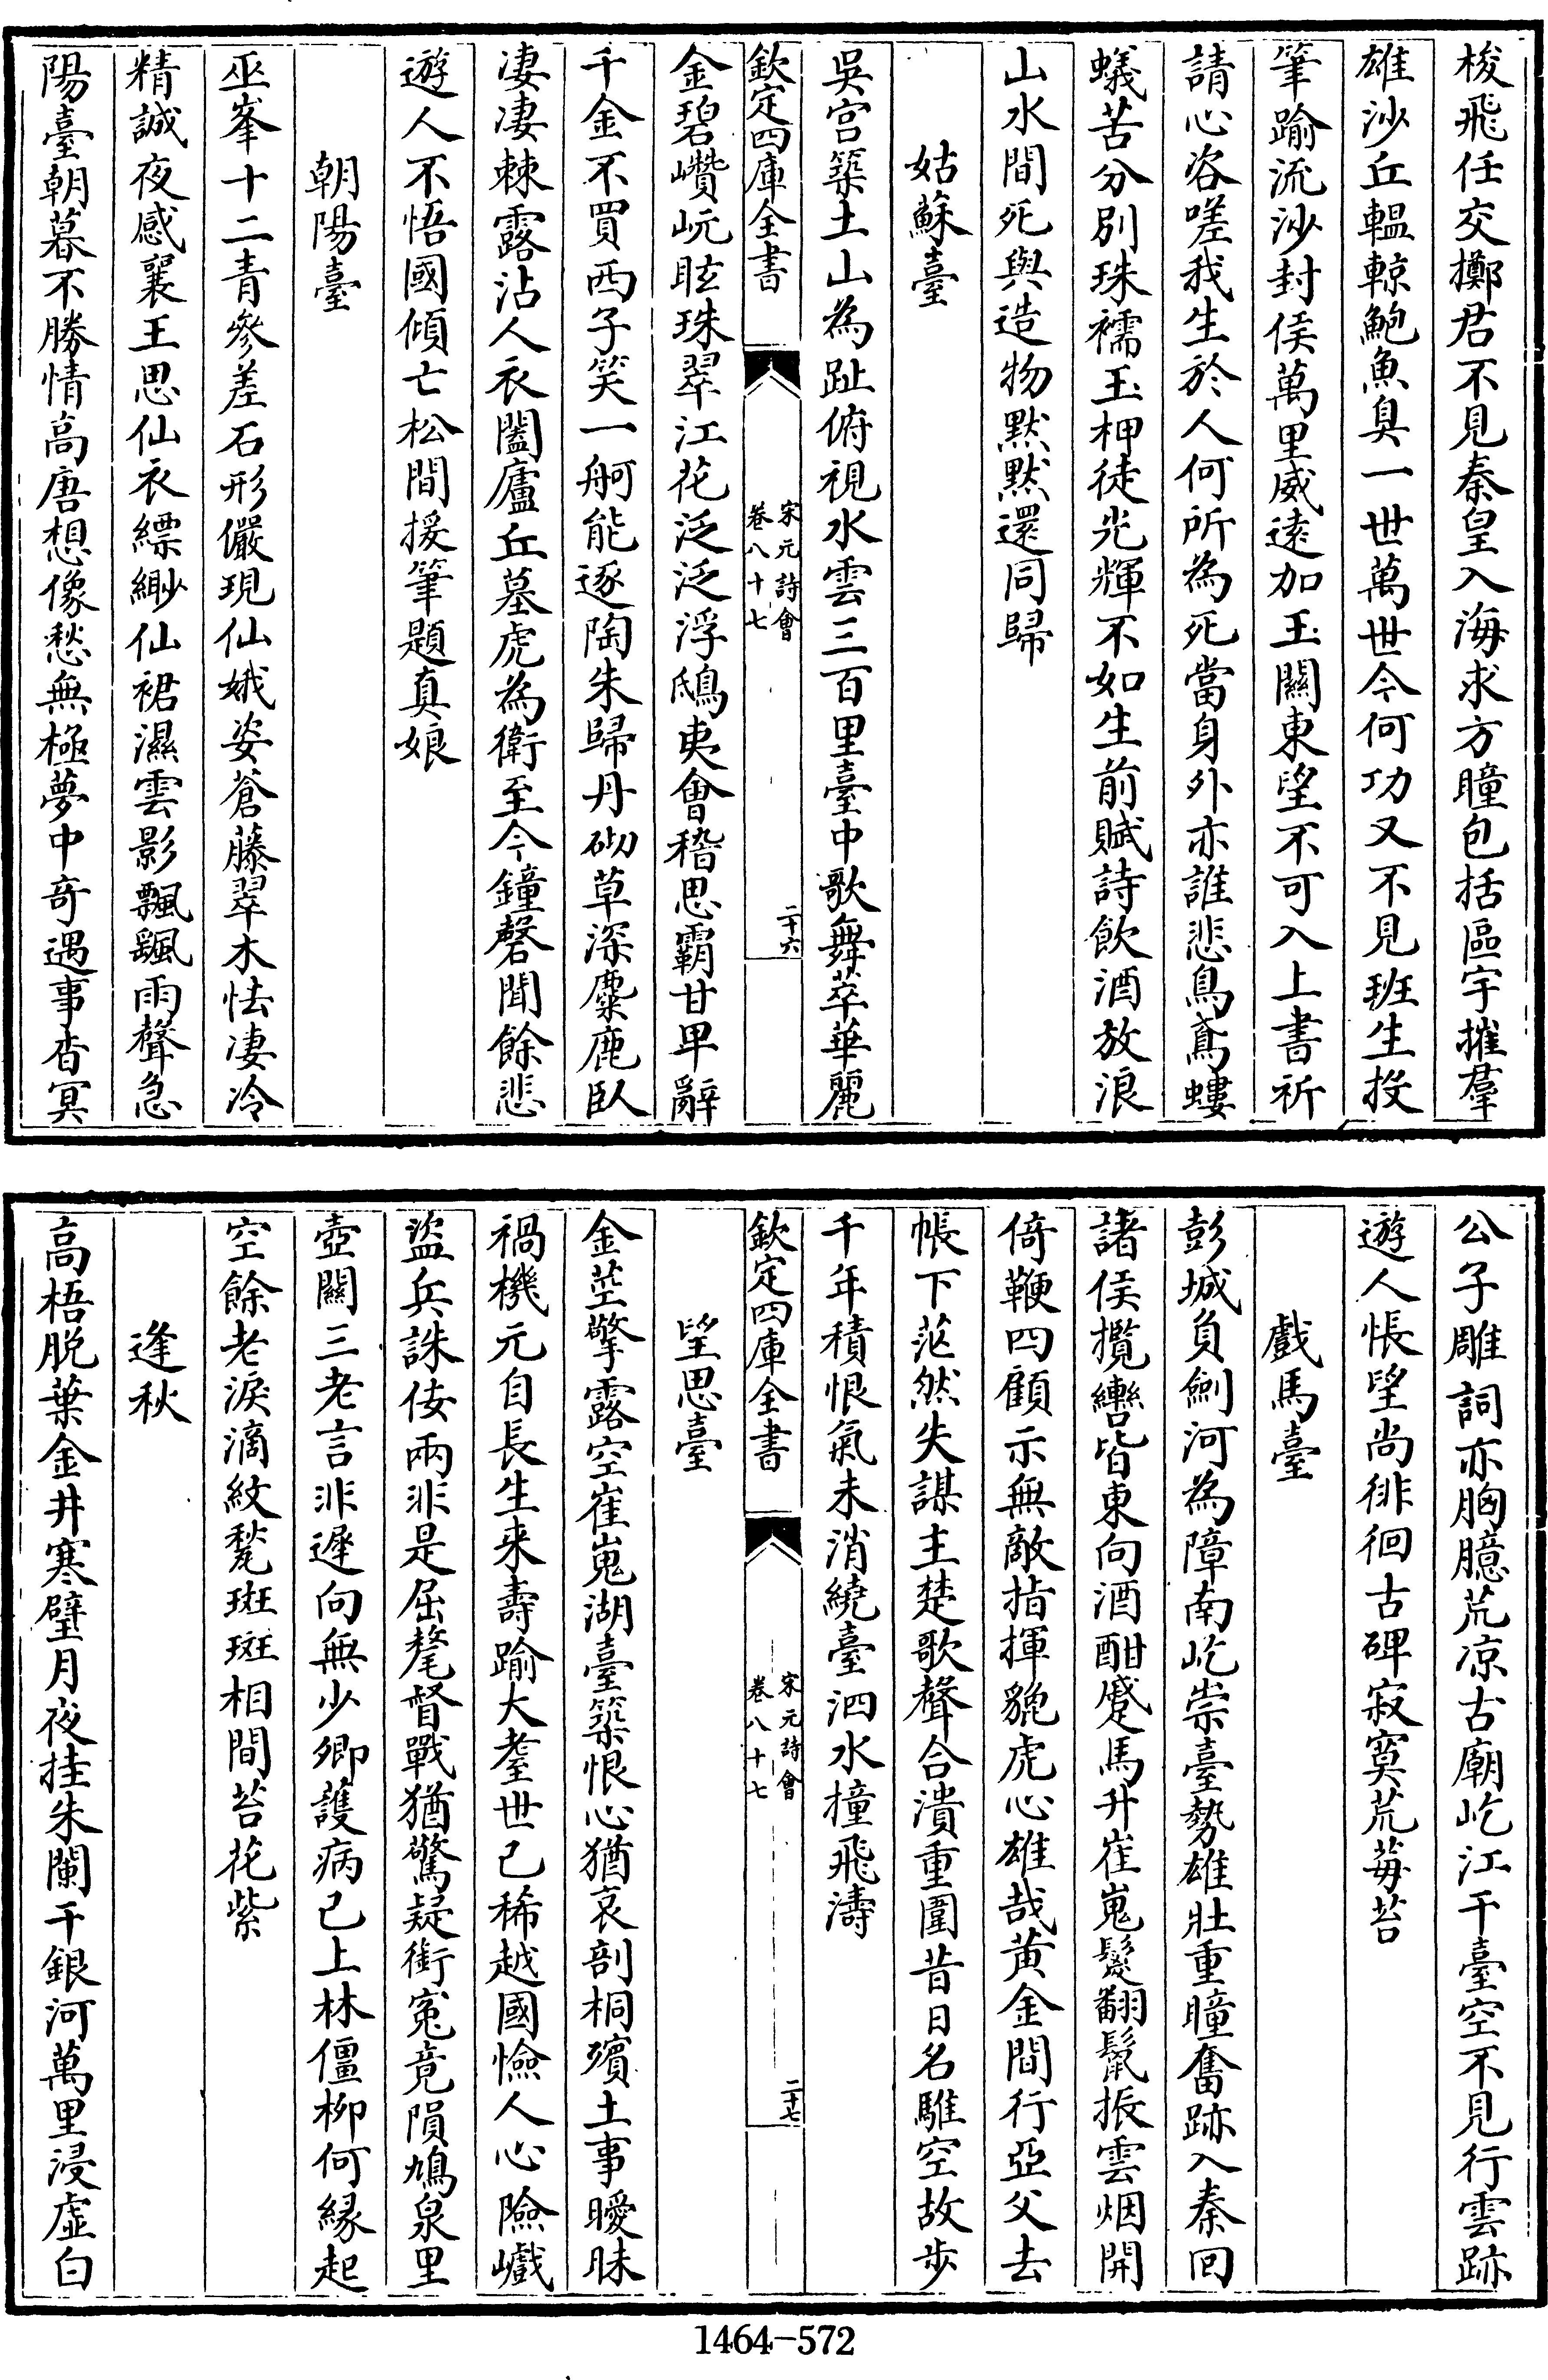 梭飛任交擲君不見秦皇入海求方瞳包括區宇摧羣
雄沙丘轀輬鮑魚臭一世萬世今何功又不見班生投
筆踰流沙封侯萬里威遠加玉關東望不可入上書祈
請心咨嗟我生於人何所為死當身外亦誰悲鳥鳶螻
蟻苦分別珠襦玉柙徒光輝不如生前賦詩飲酒放浪
山水間死與造物默默還同歸
姑蘇臺
吳宫築土山為趾俯視水雲三百里臺中歌舞萃華麗
欽定四庫全書
宋元詩會
卷八十七
二十六
金碧巑岏眩珠翠江花泛泛浮鴟夷會稽思霸甘卑辭
千金不買西子笑一舸能逐陶朱歸丹砌草深麋鹿臥
凄凄棘露沾人衣闔廬丘墓虎為衛至今鐘磬聞餘悲
遊人不悟國傾亡松間援筆題真娘
朝陽臺
巫峯十二青參差石形儼現仙娥姿蒼藤翠木怯凄冷
精誠夜感襄王思仙衣縹緲仙裙濕雲影飄颻雨聲急
陽臺朝暮不勝情高唐想像愁無極夢中奇遇事杳冥
公子雕詞亦胸臆荒凉古廟屹江干臺空不見行雲跡
遊人悵望尚徘徊古碑寂寞荒莓苔
戲馬臺
彭城負劍河為障南屹崇臺勢雄壯重瞳奮跡入秦回
諸侯攬轡皆東向酒酣蹙馬升崔嵬鬉翻鬣振雲烟開
倚鞭四顧示無敵指揮貔虎心雄哉黄金間行亞父去
帳下茫然失謀主楚歌聲合潰重圍昔日名騅空故步
千年積恨氣未消繞臺泗水撞飛濤
欽定四庫全書
宋元詩會
卷八十七
二十七
望思臺
金莖擎露空崔嵬湖臺築恨心猶哀剖桐殯土事曖昧
禍機元自長生来壽踰大耋世已稀越國憸人心險巇
盜兵誅佞兩非是屈氂督戰猶驚疑銜寃竟隕鳩泉里
壺關三老言非遲向無少卿護病已上林僵柳何緣起
空餘老淚滴紋甃斑斑相間苔花紫
逢秋
高梧脱葉金井寒璧月夜挂朱闌干銀河萬里浸虛白
1464-572